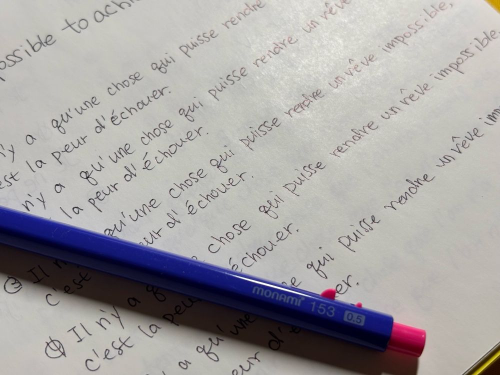 possible to achi
n'y a qu'une chose qui puisse rendre
est la peur d'échouer.
n'y a qu'une chose qui puisse rendre un rêve
la peur d'échouer.
qu'une chose qui puisse rendre un rêve impossible,
peur d'échouer.
② Il n chose qui puisse rendre un rêve impossible,
c'est échouer.
④ Il n'y a qui puisse rendre un rêve im
c'est la peu
y a qu'une
eur d'é
monami 153 0.5